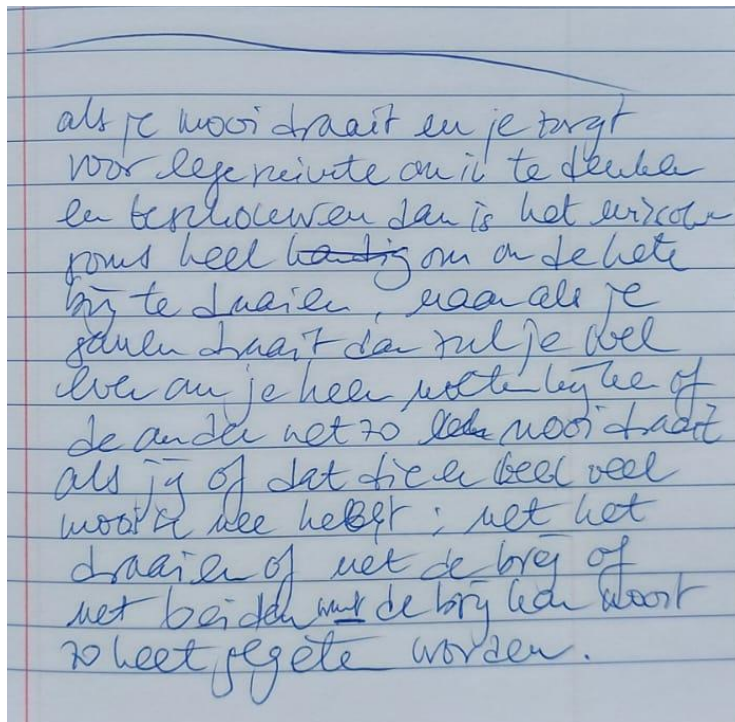 als je mooi draait en je zorgt
voor lege ruimte om in te denken
en beschouwen dan is het
soms heel handig om om de hete
brij te draaien, maar als je
samen draait dan zul je wel
even om je heen moeten kijken of
de ander net zo mooi draait
als jij of dat die er heel veel
moeite mee hebt; met het
draaien of met de brij of
met beiden want de brij kan nooit
zo heet gegeten worden.